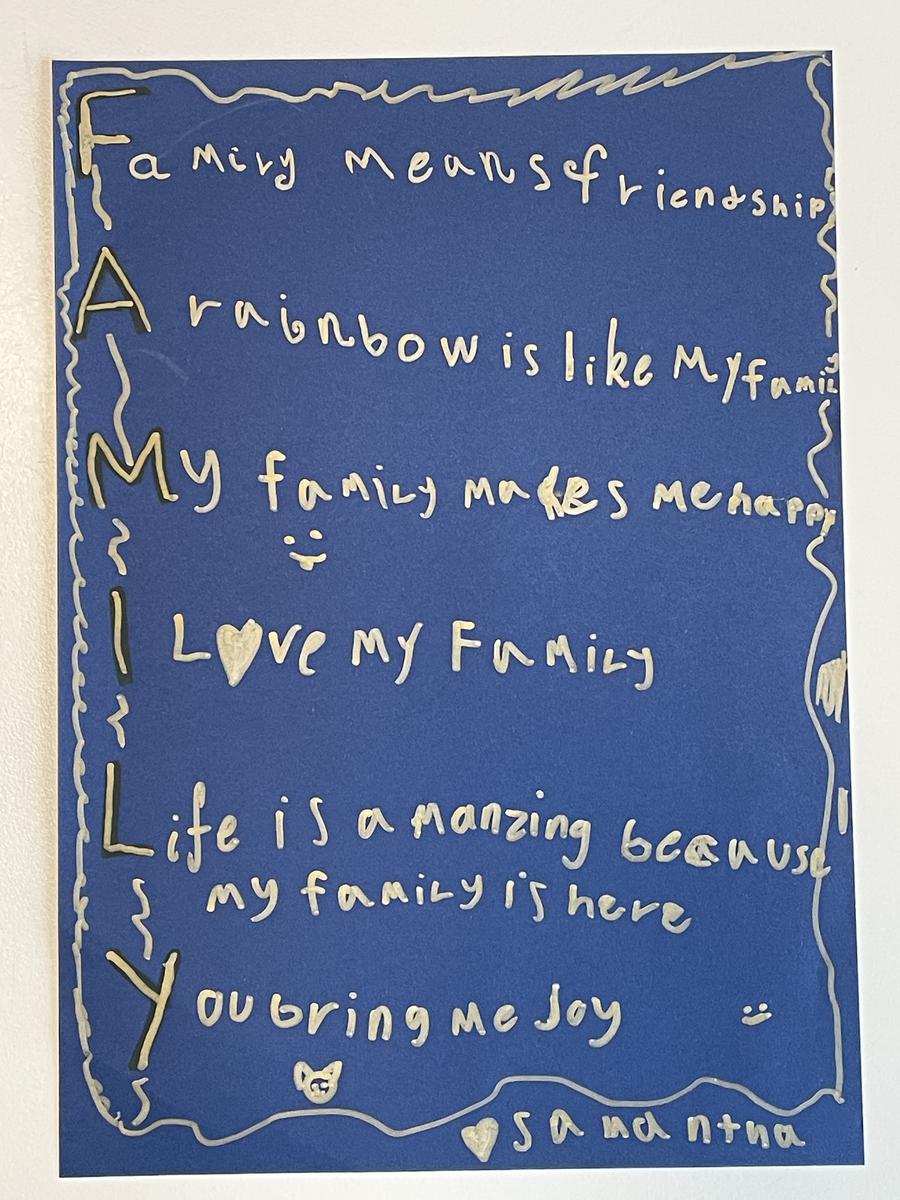 Family means friendship
A rainbow is like My family
My family makes me happy
I Love My Family
Life is a manzing because
my family is here
You bring me Joy
samantha